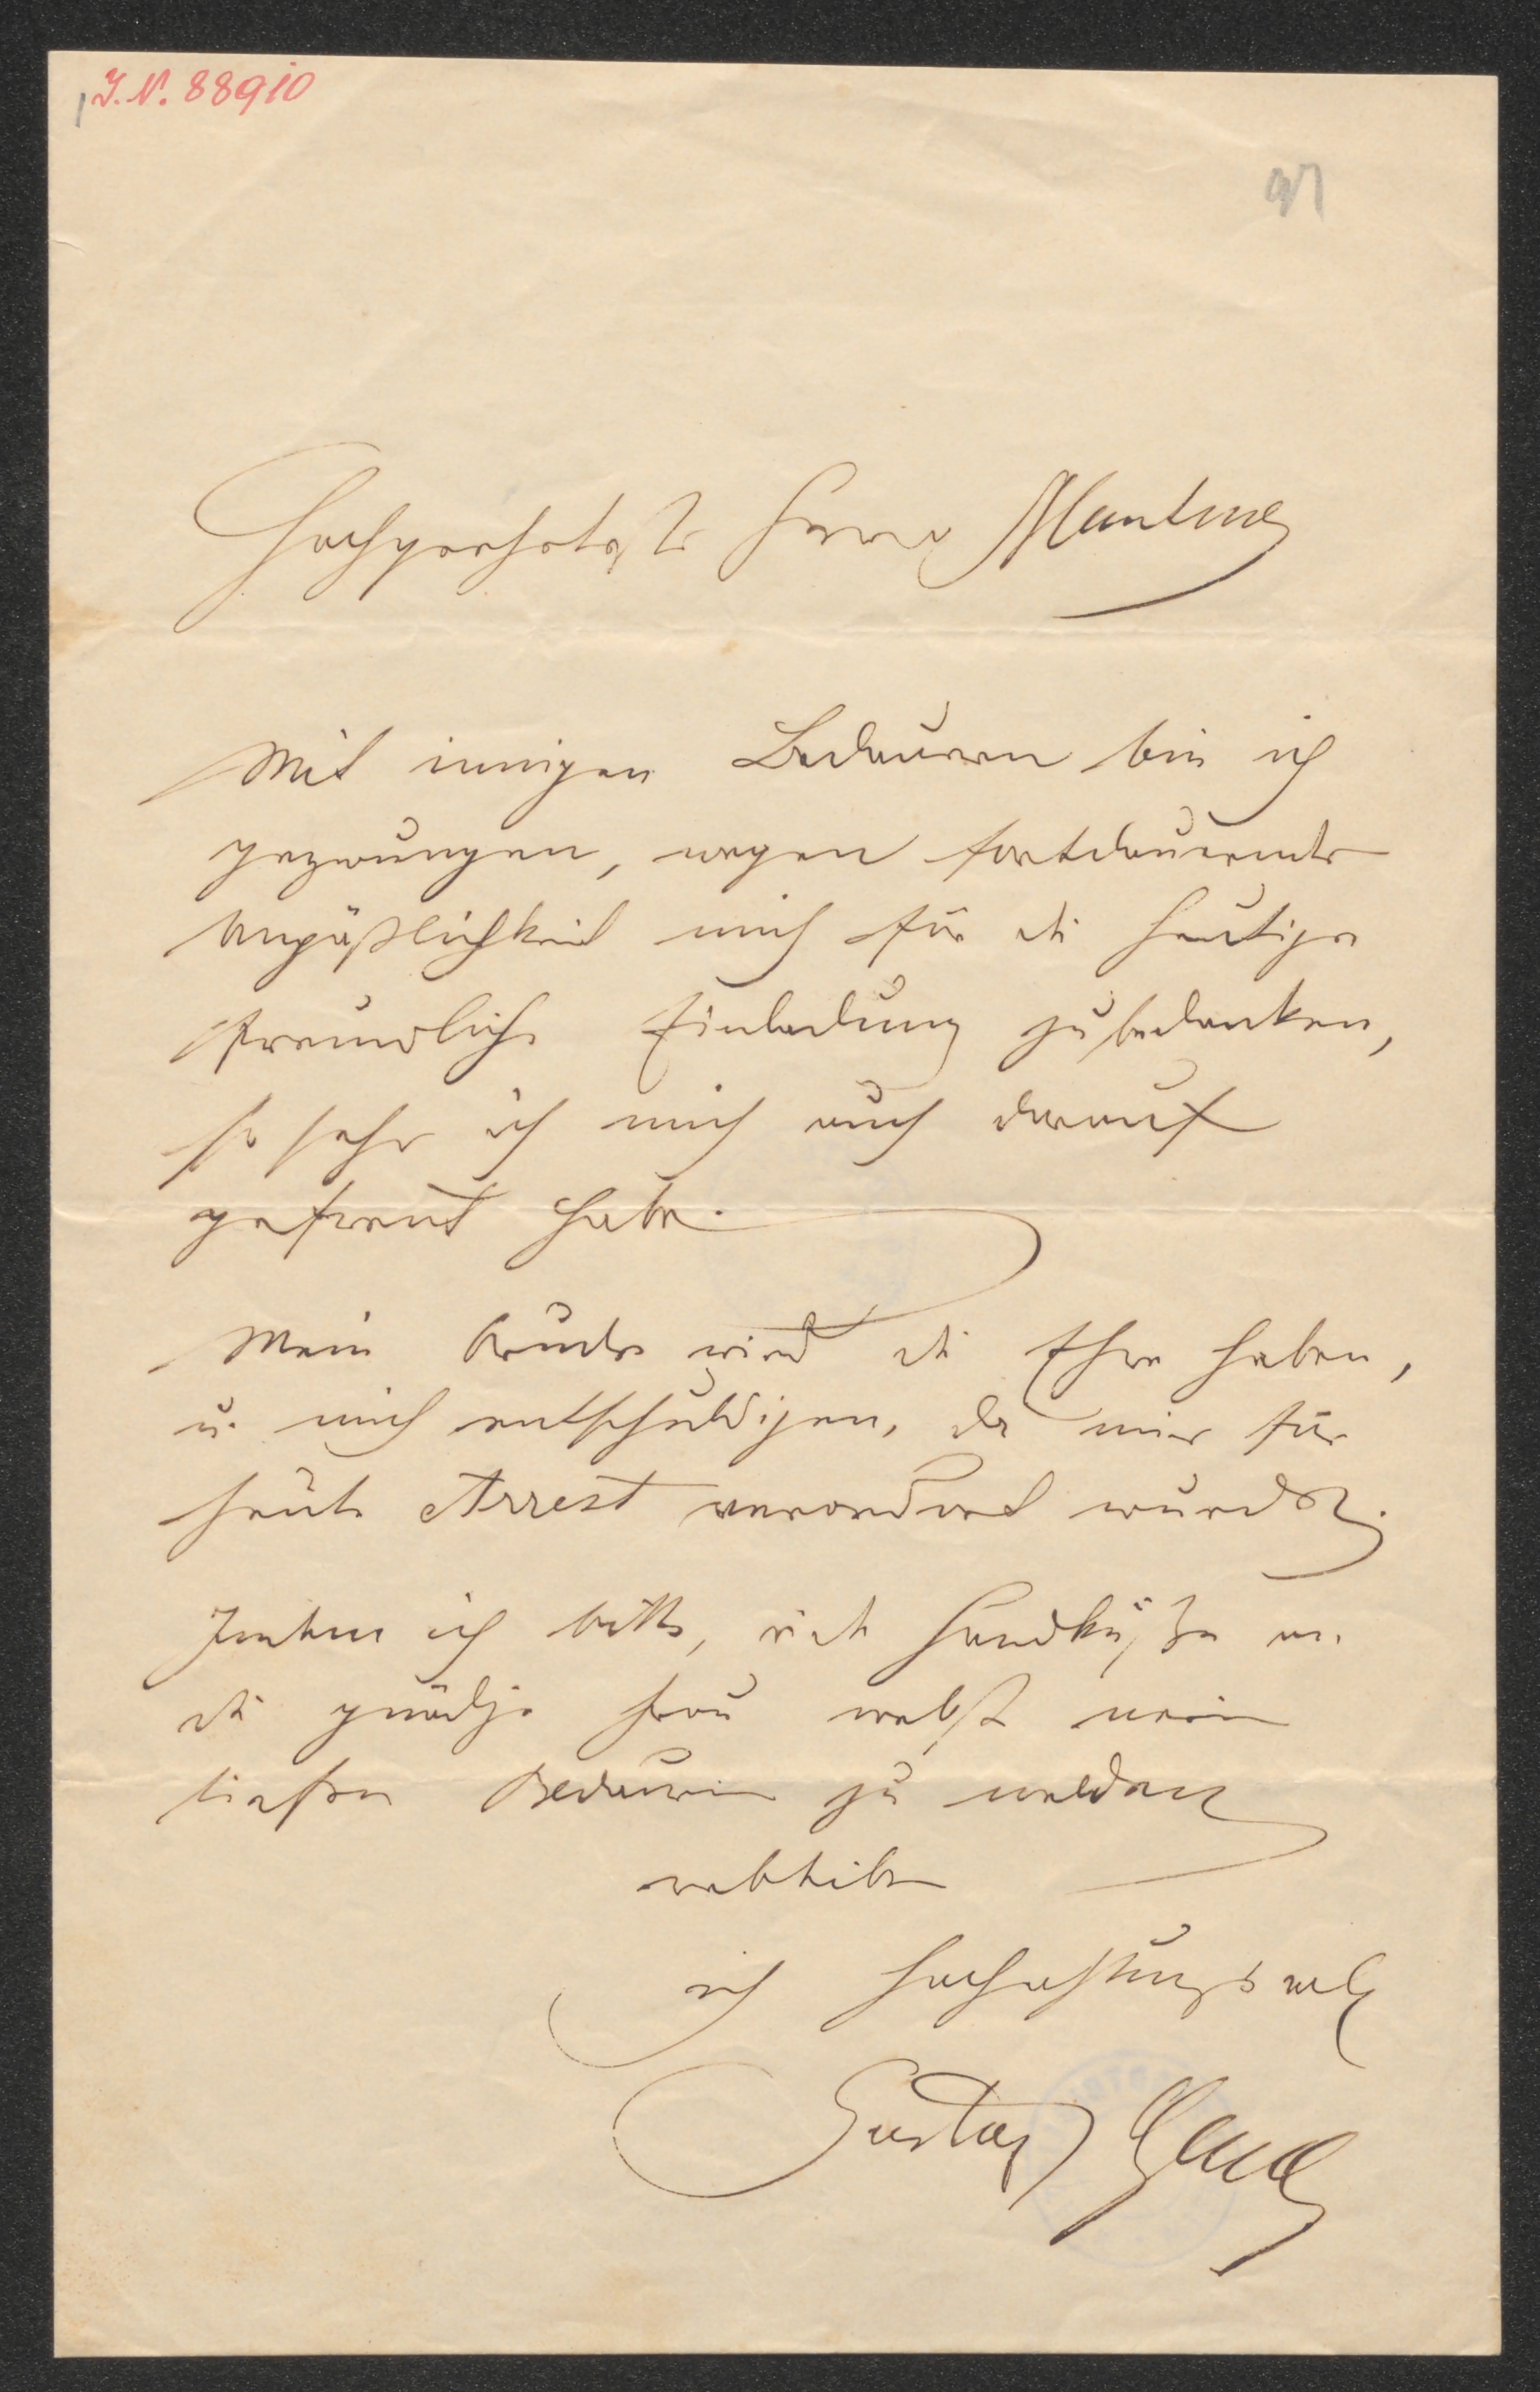 J. N. 88910
Hochgeehrtester Herr
Mit innigem Bedauern bin ich
gezwungen, wegen fortdauernder
Unpäßlichkeit mich für die heutige
freundliche Einladung zu bedanken,
so sehr ich mich auch darauf
gefreut habe.
Mein Bruder wird die Ehre haben,
u. mich entschuldigen, da mir für
heute Arrest verordnet wurde.
Indem ich bitte, die Handküße an
die gnädige Frau nebst mein
tiefstes Bedauern zu melden
verbleibe
ich hochachtungsvoll
Gustav